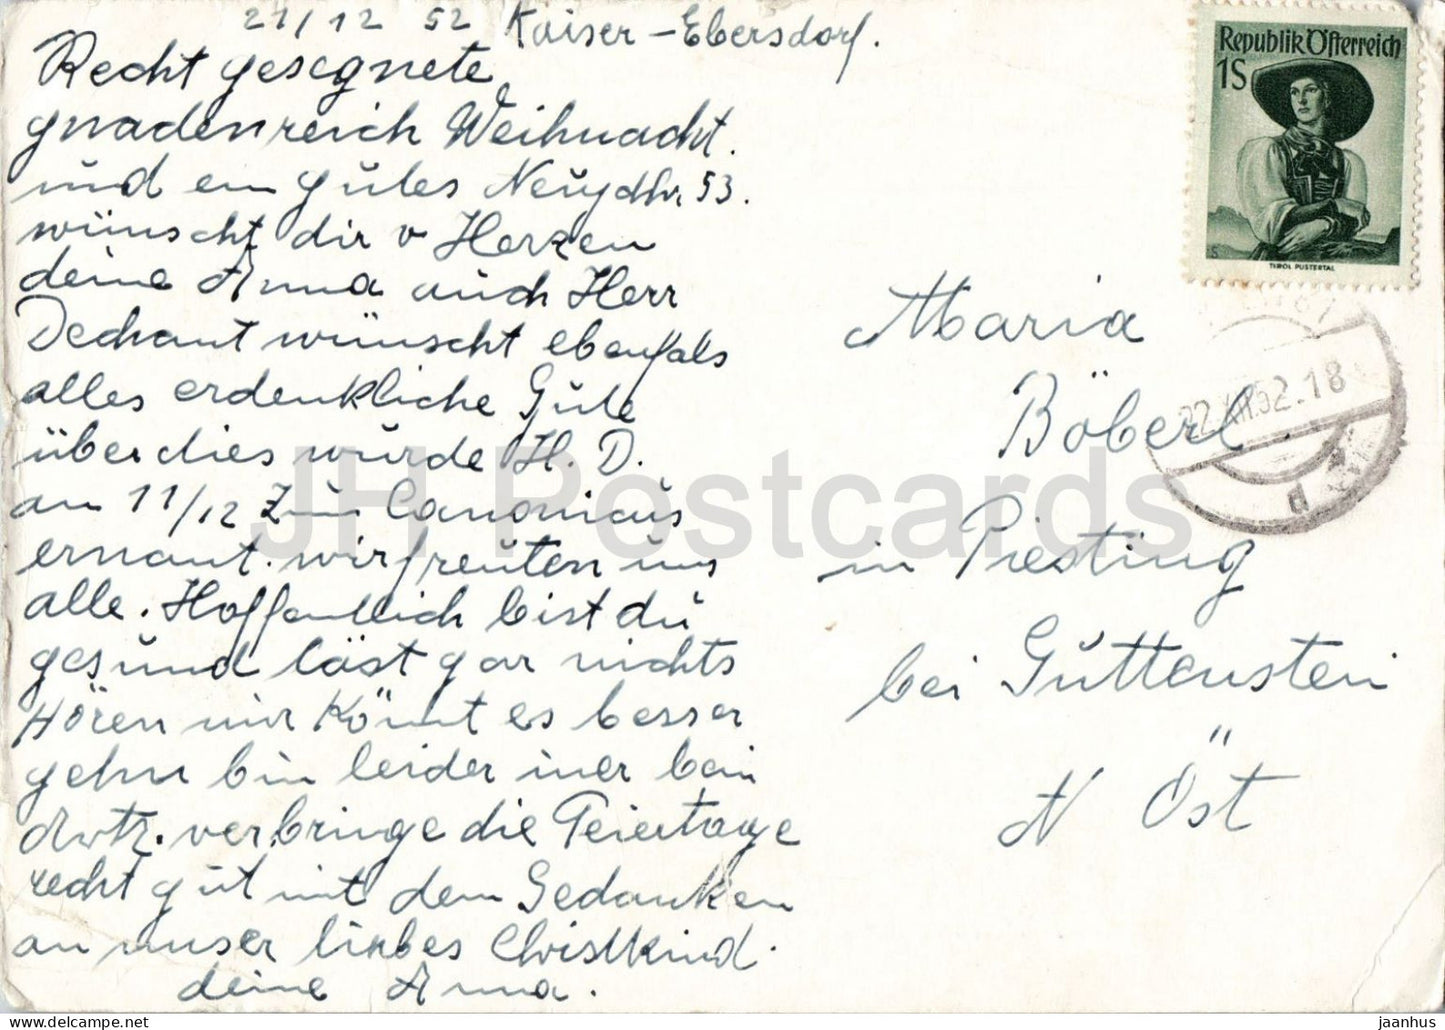 21/12 52 Kaiser-Ebersdorf.
Recht gesegnete
gnadenreich Weihnacht.
und ein gutes Neujahr 53.
wünscht dir v Herzen
deine Anna auch Herr
Dechant wünscht ebenfals
alles erdenkliche Gute
überdies wurde H. D.
am 11/12 zum Canonicus
ernant. wir freuten uns
alle. Hoffentlich bist du
gesund läst gar nichts
Hören mir Könnt es besser
gehn bin leider imer beim
Arzt. verbringe die Feiertage
recht gut mit dem Gedanken
an unser liebes Christkind.
deine Anna.
Republik Österreich
1S
TIROL PUSTERTAL
22.XII.52.18
d
Maria
Böberl
in Piesting
bei Guttenstein
N Öst
JH Postcards
eu.delcampe.net
jaanhus